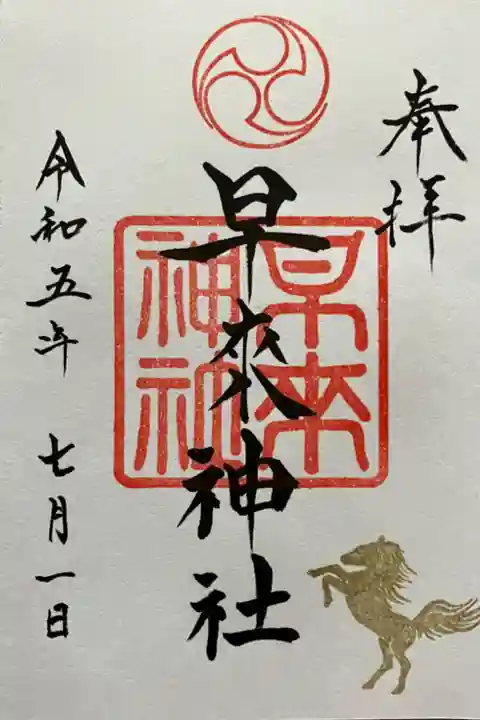 奉拝
早来神社
早来
神社
令和五年 七月一日